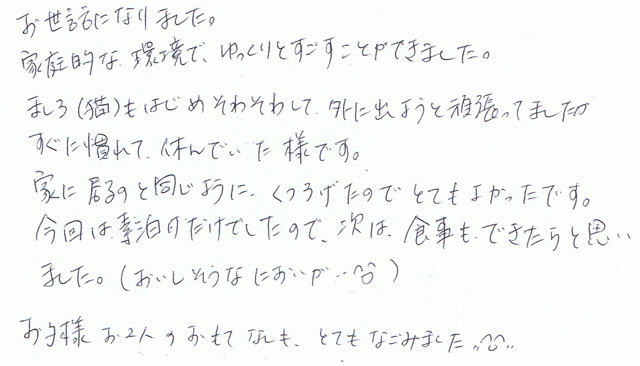 お世話になりました。
家庭的な環境で、ゆっくりとすごすことができました。
ましろ(猫)もはじめそわそわして、外に出ようと頑張ってましたが
すぐに慣れて、休んでいた様です。
家に居るのと同じように、くつろげたのでとてもよかったです。
今回は、素泊りだけでしたので、次は、食事も、できたらと思い
ました。(おいしそうなにおいが‥^^)
お子様お2人のおもてなしも、とてもなごみました